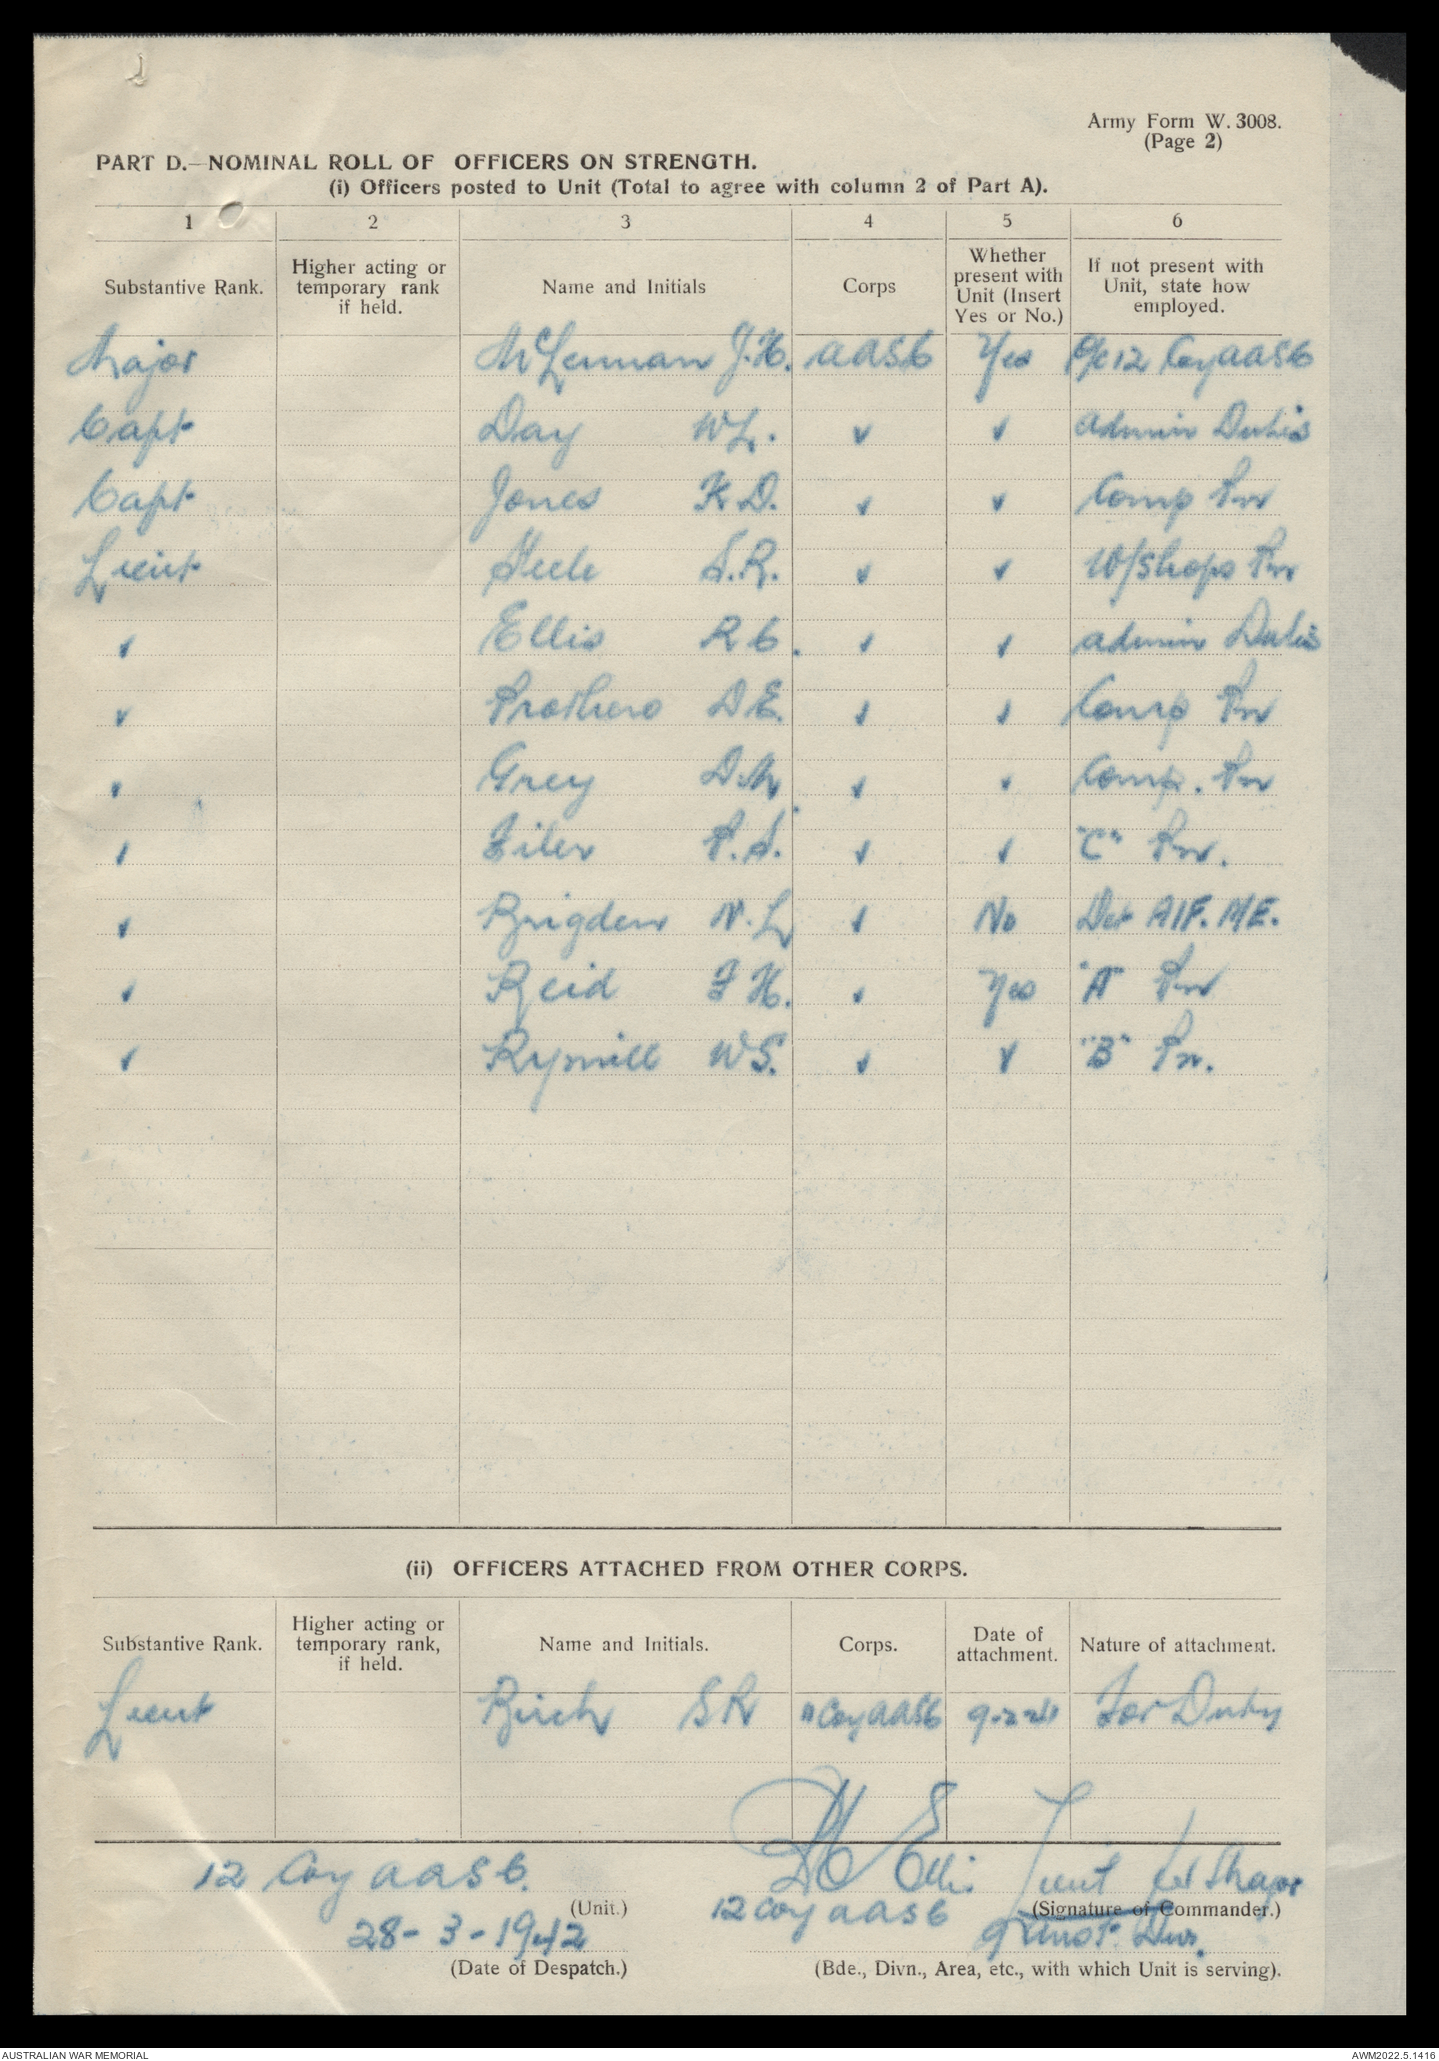 Army Form W. 3008.
(Page 2)
PART D.—NOMINAL ROLL OF OFFICERS ON STRENGTH.
(i) Officers posted to Unit (Total to agree with column 2 of Part A).
1 2 3 4 5 6
Substantive Rank. Higher acting or temporary rank if held. Name and Initials Corps Whether present with Unit (Insert Yes or No.) If not present with Unit, state how employed.
Major McLennan J.H. AASC Yes O/C 12 Coy AASC
Capt Day W L. ✓ ✓ Admin Duties
Capt Jones K D. ✓ ✓ Comp Pn
Lieut Steele S.R. ✓ ✓ W/Shops Pn
✓ Ellis R C. ✓ ✓ Admin Duties
✓ Prothero D E. ✓ ✓ Comp Pn
✓ Grey D.M. ✓ ✓ Comp. Pn
✓ Filer P.S. ✓ ✓ "C" Pn.
✓ Brigden N. L ✓ No Det AIF. M/E.
✓ Reid F H. ✓ Yes "A" Pn
✓ Rymill W S. ✓ ✓ "B" Pn.
(ii) OFFICERS ATTACHED FROM OTHER CORPS.
Substantive Rank. Higher acting or temporary rank, if held. Name and Initials. Corps. Date of attachment. Nature of attachment.
Lieut Birch S R 11 Coy AASC For Duty
12 Coy AASC.
Ellis Lieut for Major
(Unit.)
12 Coy AASC
(Signature of Commander.)
28-3-1942
(Date of Despatch.)
(Bde., Divn., Area, etc., with which Unit is serving).
AUSTRALIAN WAR MEMORIAL
AWM2022.5.1416